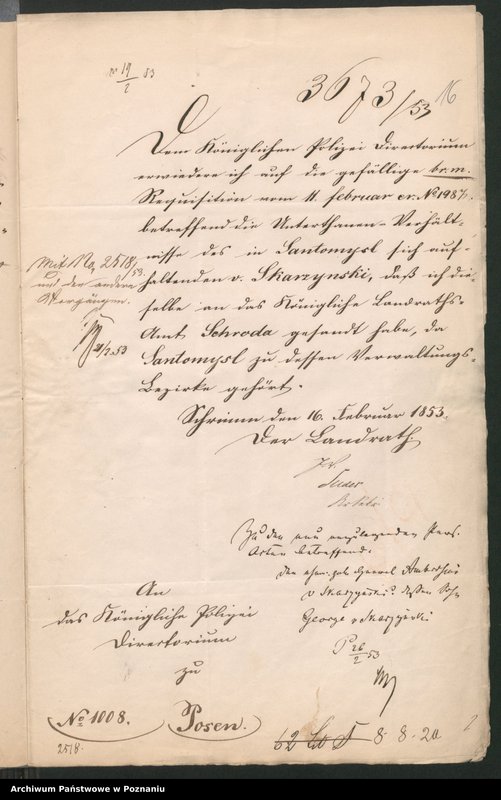 pr 19/2 53
3673/53
16
Dem Königlichen Polizei Directorium
erwiedere ich auf die gefällige br. m.
Requisition vom 11. Februar cr. No 1987,
betreffend die Unterthanen-Verhält-
nisse des in Santomysl sich auf-
haltenden v. Skarzynski, daß ich die-
selbe an das Königliche Landraths-
Amt Schroda gesandt habe, da
Santomysl zu dessen Verwaltungs-
Bezirke gehört.
Schrimm den 16. Februar 1853.
Der Landrath.
Mit No. 2518/53.
und den andern
Vorgängen.
21/2 53
Zu den neu anzulegenden Pers.
Acten betreffend.
den ehem. pol. General Ambrosius
v Skarzynski u dessen Sohn
George v Skarzynski
P 26/2 53
An
das Königliche Polizei
Directorium
zu
Posen.
No 1008.
2518.
8. 8. 20